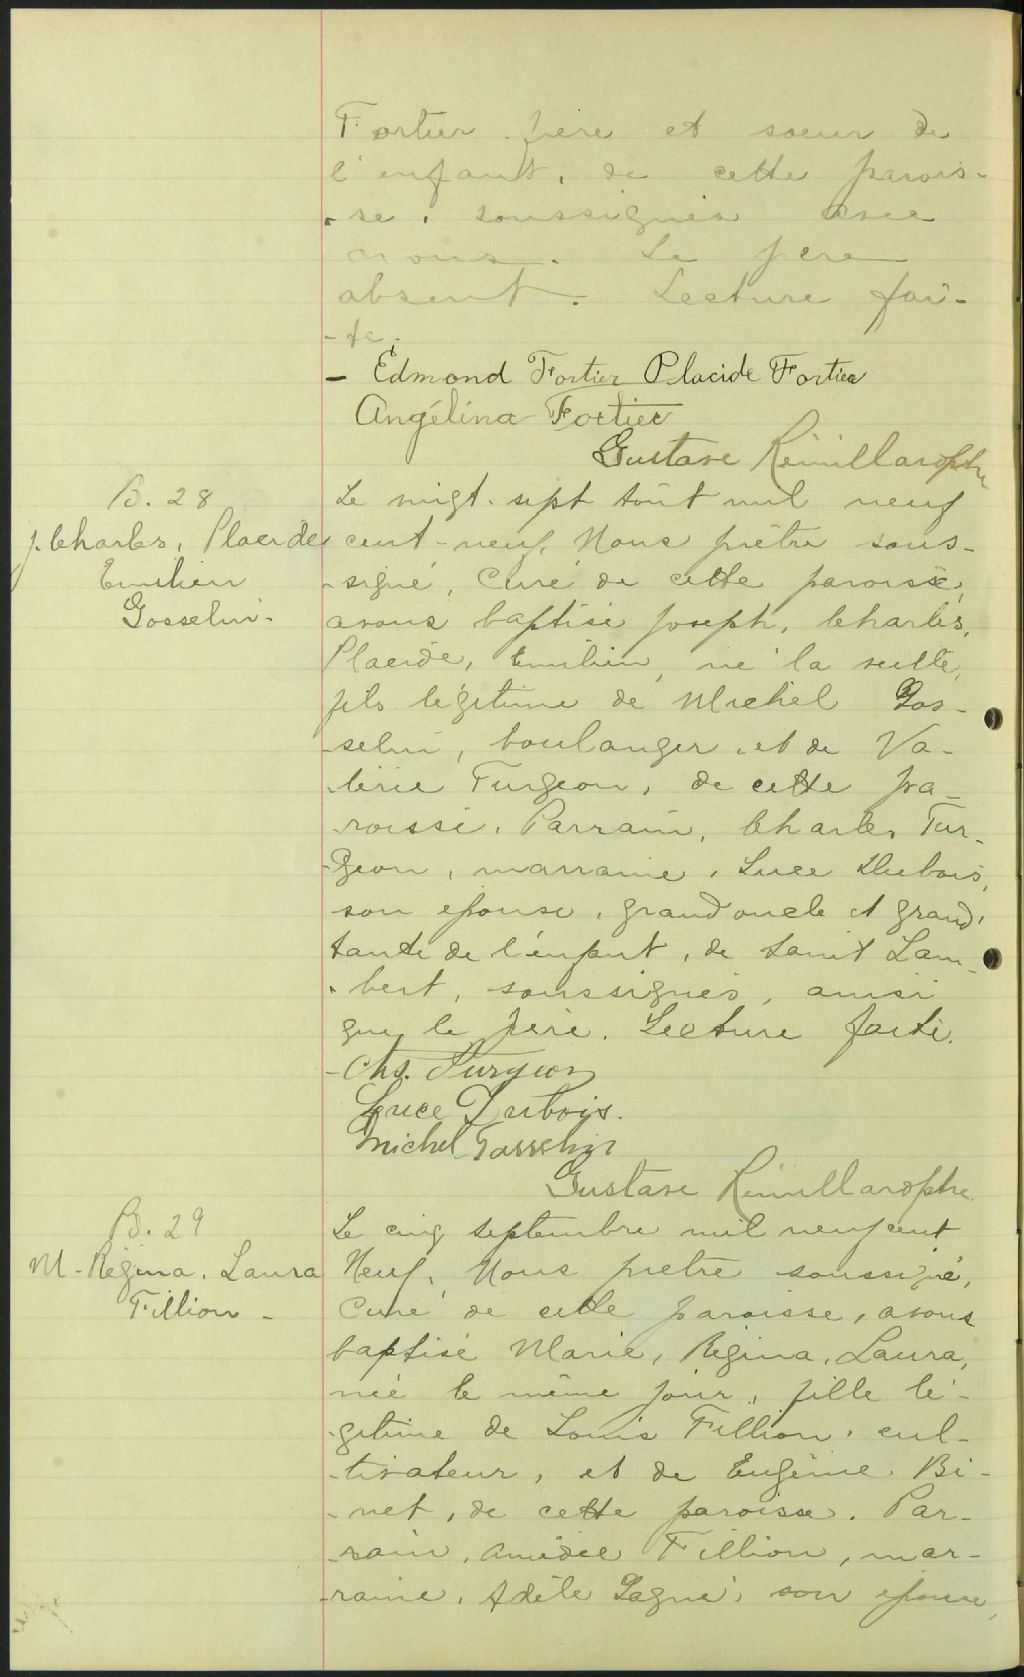 Fortier frère et soeur de
l'enfant, de cette parois-
-se, soussignés avec
nous. Le père
absent. Lecture fai-
-te.
- Edmond Fortier Placide Fortier
Angélina Fortier
Gustave Rémillard ptre
B. 28
J. Charles, Placide
Emilien
Gosselin.
Le vingt-sept août mil neuf
cent-neuf, Nous prêtre sous-
-signé, Curé de cette paroisse,
avons baptisé Joseph, Charles,
Placide, Emilien, né la veille,
fils légitime de Michel Gos-
-selin, boulanger, et de Va-
-lérie Turgeon, de cette pa-
-roisse. Parrain, Charles Tur-
-geon, marraine, Luce Dubois,
son épouse, grand oncle et grand'
tante de l'enfant, de Saint Lam-
-bert, soussignés, ainsi
que le père. Lecture faite.
- Chs. Turgeon
Luce Dubois.
Michel Gosselin
Gustave Rémillard ptre.
B. 29
M-Régina, Laura
Fillion -
Le cinq septembre mil neuf cent
Neuf, Nous prêtre soussigné,
Curé de cette paroisse, avons
baptisé Marie, Régina, Laura,
née le même jour, fille lé-
-gitime de Louis Fillion, cul-
-tivateur, et de Eugénie Bi-
-net, de cette paroisse. Par-
-rain, Amédée Fillion, mar-
-raine, Adèle Gagné, son épouse,